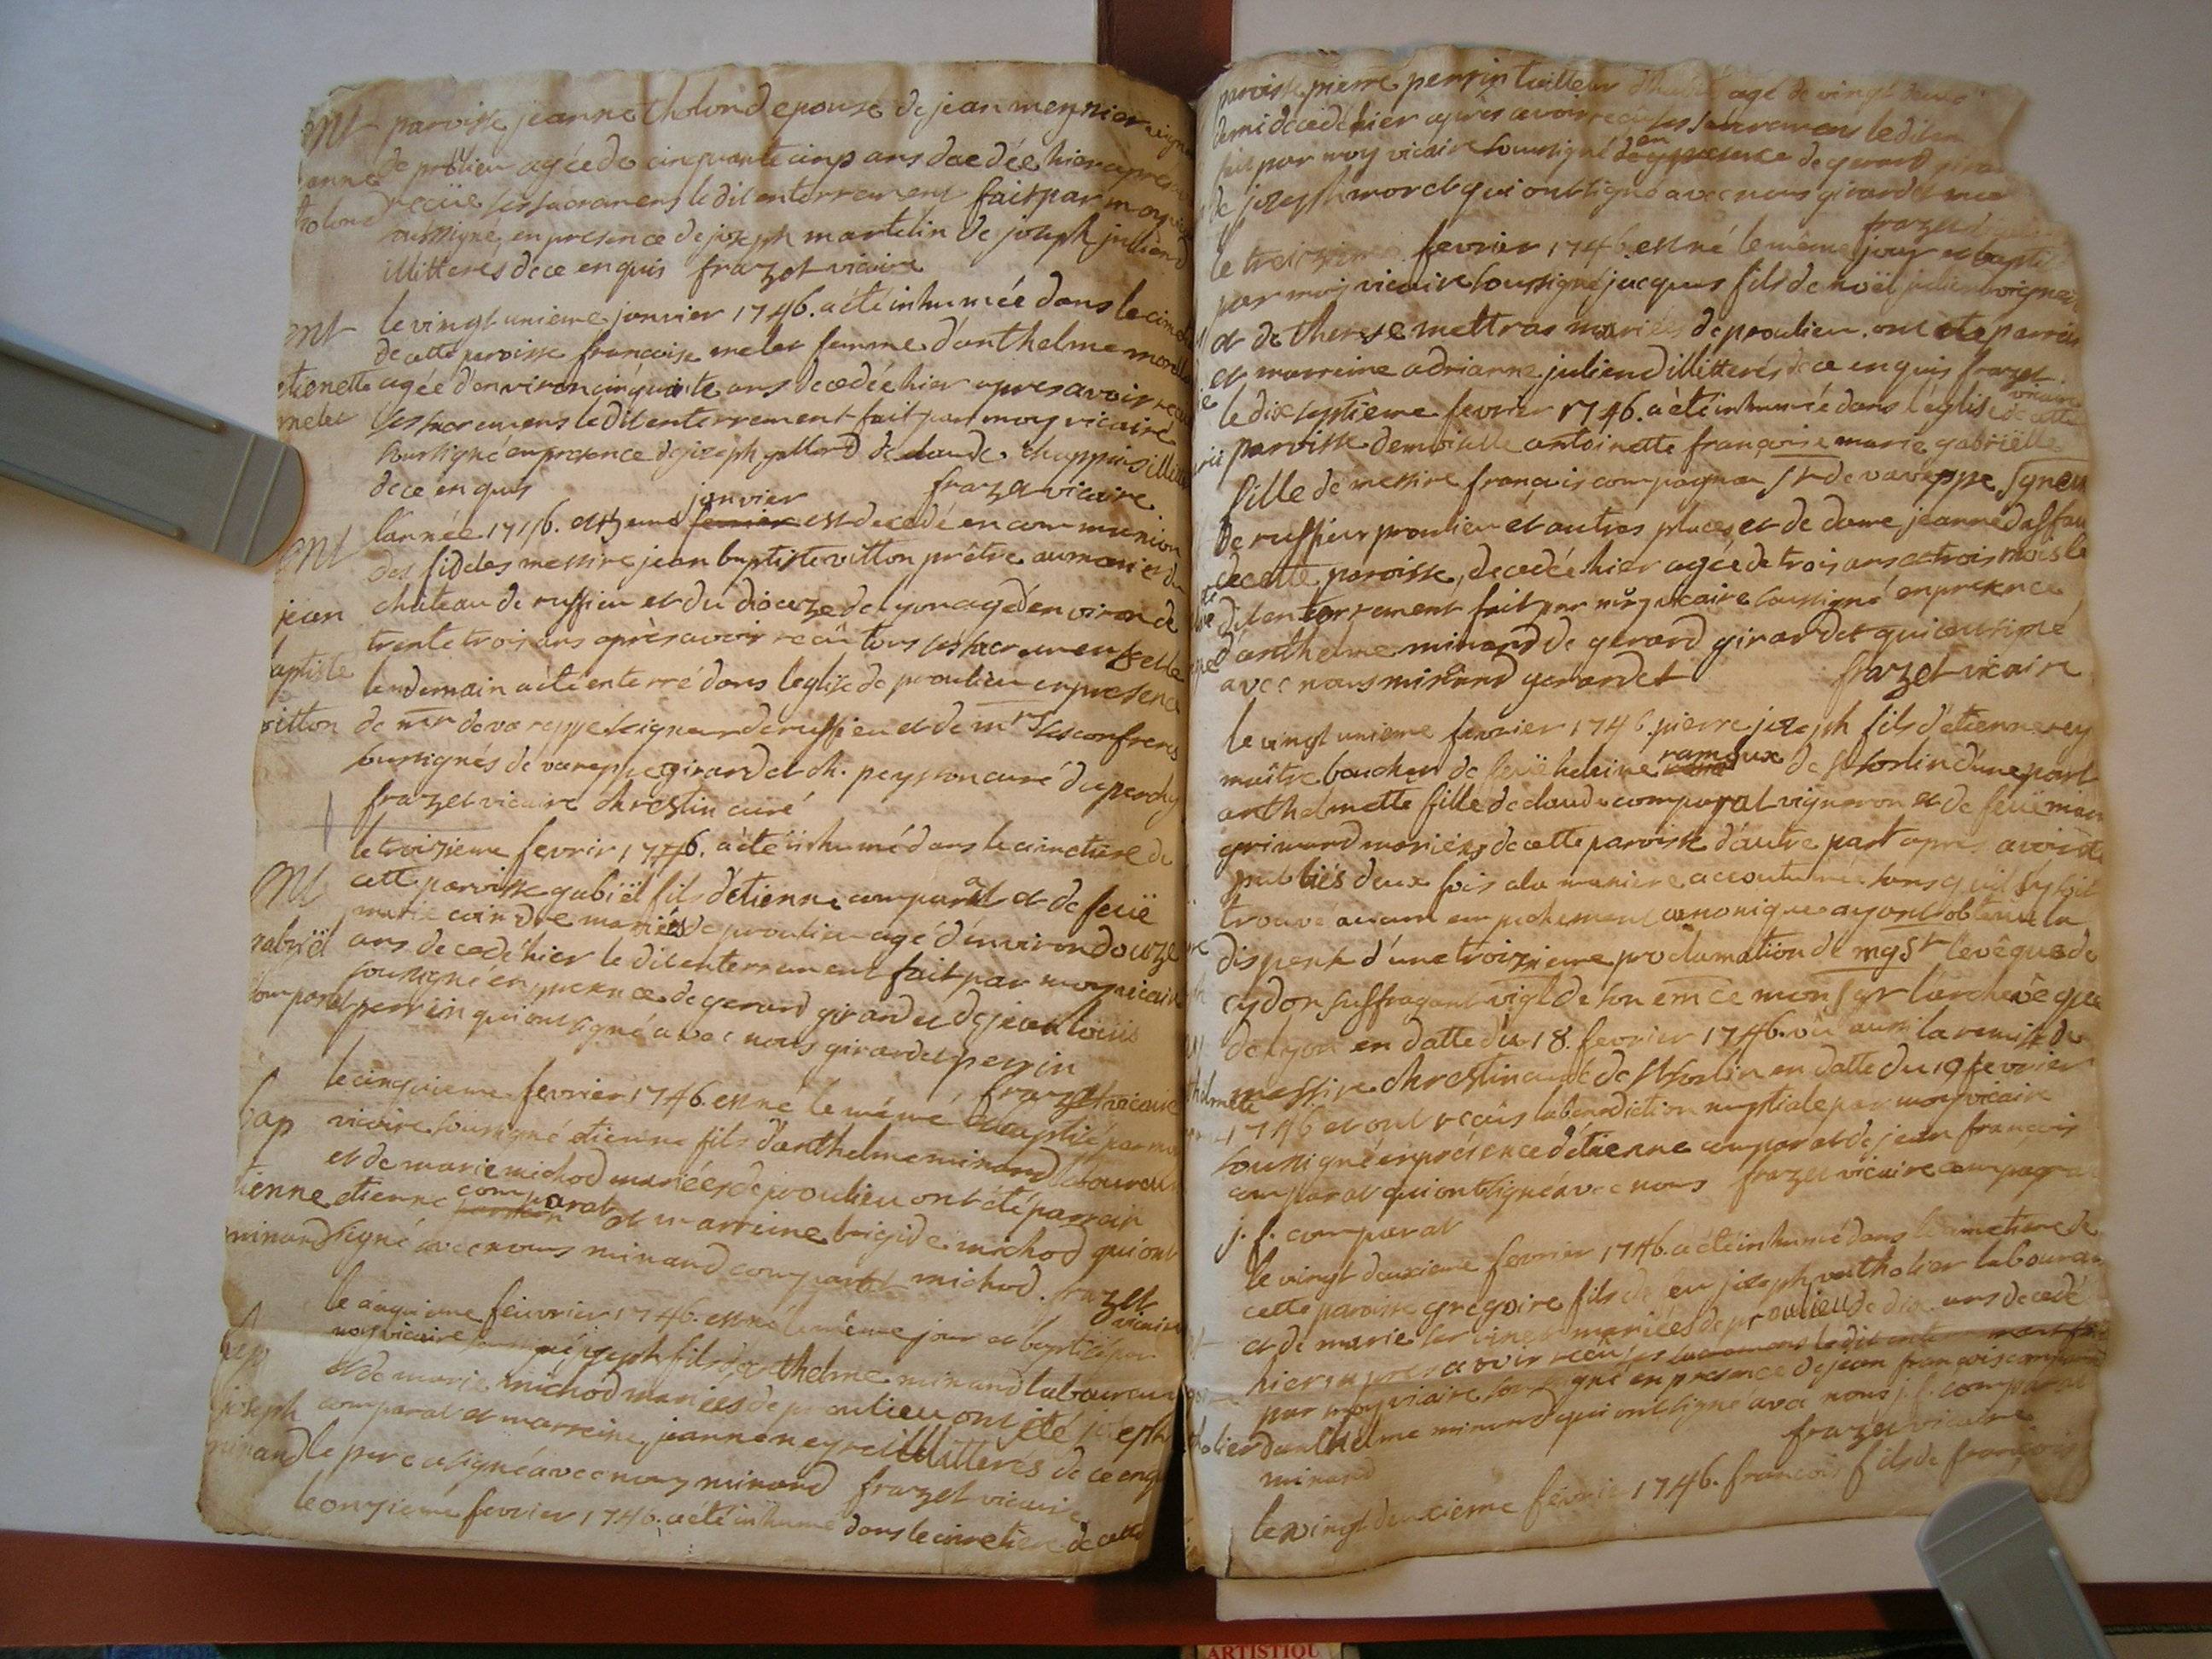 ent
parroisse jeanne tholond epouse de jean meynier
anne
de proulieu agée de cinquante cinq ans decedée hier apres
tholond
recüe ses sacremens le dit enterrement fait par moy
soussigné en presence de joseph martelin de joseph juliend
illitterés de ce enquis frazet vicaire
ent
le vingt unieme janvier 1746. a été inhumée dans le cim
de cette parroisse françoise melet femme d'anthelme morel
etienette
agée d'environ cinquante ans decedée hier apres avoir recue
melet
ses sacremens le dit enterrement fait par moy vicaire
soussigné en presence de joseph gallard de claude chappuis illitte
de ce enquis frazet vicaire
janvier
l'année 1746. et fevrier est decedé en communion
ent
des fideles messire jean baptiste vitton prêtre aumonier du
jean
château de ruffieu et du dioceze de lyon agé d'environ de
baptiste
trente trois ans après avoir reçû tous ses sacremens et le
lendemain a été enterré dans leglise de proulieu en presence
vitton
de mr de vareppe seigneur de ruffieu et de mrs ses confreres
soussignés de vareppe girard et ch. peysson curé du
frazet vicaire chrestin curé
le troizieme fevrir 1746. a été inhumé dans le cimetiere de
ent
cette parroisse gabriël fils d'etienne comparat et de feüe
marie mariés de proulieu agé d'environ douze
gabriël
ans decedé hier le dit enterrement fait par moy vicaire
comparat
soussigné en presence de gerard girardet de jean louis
perrin qui ont signé avec nous girardet perrin
frazet vicaire
le cinquieme fevrier 1746. est né le même et baptisé par moy
bap
vicaire soussigné etienne fils d'anthelme minand laboureur
et de marie michod mariées de proulieu ont été parrain
etienne
etienne comparat et marreine brigide michod qui ont
minand
signé avec nous minand comparat michod. frazet
vicaire
le cinquieme feivrier 1746. est né le même jour et baptisé par
bap
moy vicaire soussigné joseph fils d'anthelme minand laboureur
et de marie michod mariées de proulieu ont été joseph
joseph
comparat et marreine jeanne neyret illitterés de ce enquis
minand
le pere a signé avec nous minand frazet vicaire
le onzieme fevrier 1746. a été inhumé dans le cimetiere de cette
parroisse pierre perrin tailleur d'habit agé de vingt
demi decedé hier après avoir reçû ses sacremens le dit en
fait par moy vicaire soussigné en presence de gerard girar
de joseph morel qui ont signé avec nous girardet mo
frazet
le treizieme fevrier 1746. est né le même jour et bapti
par moy vicaire soussigné jacques fils de noël juliend vigner
et de therese mettras mariées de proulieu. ont été parrein
et marreine adrianne juliend illitterés de ce enquis frazet
vicaire
le dix septième fevrier 1746. a été inhumée dans l'église de cette
parroisse demoiselle antoinette françoise marie gabriëlle
fille de messire françois compagnon sr de vareppe sgneur
de ruffieu proulieu et autres places et de dame jeanne daffau
de cette paroisse, decedée hier agée de trois ans et trois mois le
dit enterrement fait par moy vicaire soussigné en presence
d'anthelme minand de gerard girardet qui ont signé
avec nous minand gerardet frazet vicaire
le vingt unieme fevrier 1746. pierre joseph fils d'etienne rey
maître boucher de feuë heleine rameaux de st sorlin d'une part
anthelmette fille de claude comparat vigneron et de feuë marie
grimand mariées de cette parroisse d'autre part apres avoir été
publiés deux fois a la maniere accoutumée sans qu'il sy soit
trouvé aucun empechement canonique ayant obtenu la
dispense d'une troizieme proclamation de mgsr levêque de
cydon suffragant vigt de son emce monsgr l'archevêque
de lyon en datte du 18. fevrier 1746. vû aussi la remise de
messire chrestin curé de st sorlin en datte du 19 fevrier
1746 et ont reçûs la benediction nuptiale par moy vicaire
soussigné en présence d'etienne comparat de jean francois
comparat qui ont signé avec nous frazet vicaire comparat
j. f. comparat
le vingt deuxieme fevrier 1746. a été inhumé dans le cimetiere de
cette paroisse gregoire fils de feu joseph vertholier laboureur
et de marie mariées de proulieu de dix ans decedé
hier apres avoir reçu ses sacremens le dit enterrement fait
par moy viaire soussigné en presence de jean francois comparat
d'anthelme minand qui ont signé avec nous j. f. comparat
minand frazet vicaire
le vingt deuxieme fevrie 1746. francois fils de françois
ARTISTIQU